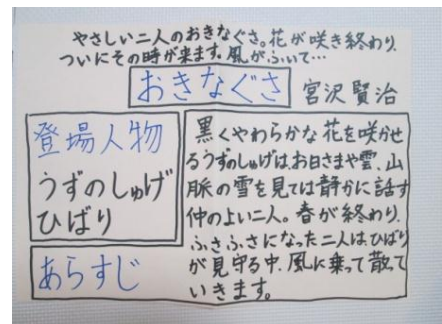 やさしい二人のおきなぐさ。花が咲き終わり、
ついにその時が来ます。風がふいて…
おきなぐさ 宮沢賢治
登場人物
うずのしゅげ
ひばり
あらすじ
黒くやわらかな花を咲かせ
るうずのしゅげは、お日さまや雲、山
脈の雪を見ては静かに話す
仲のよい二人。春が終わり、
ふさふさになった二人は、ひばり
が見守る中、風に乗って散って
いきます。